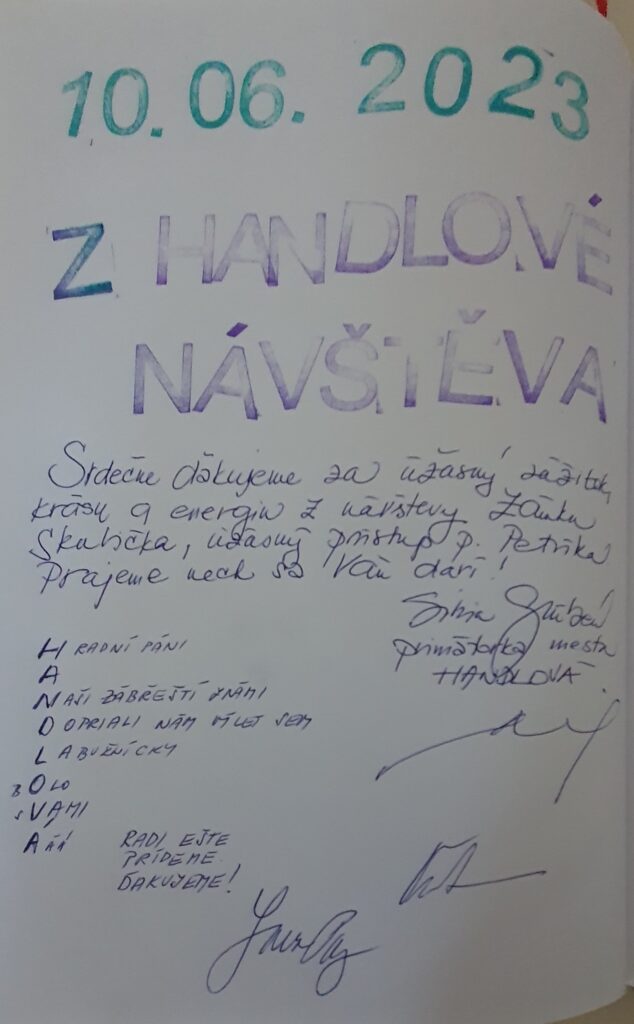 10. 06. 2023
Z HANDLOVÉ
NÁVŠTĚVA
Srdečne ďakujeme za úžasný zážitok,
krásu a energiu z návštevy Zámku
Skalička, úžasný prístup p. Petříka
Prajeme nech sa Vám darí!
Silvia Grúberová
primátorka mesta
HANDLOVÁ
HRADNÍ PÁNI
A
NAŠI ZÁBŘEŠTÍ ZNÁMI
DOPRIALI NÁM VÝLET SEM
LABUŽNÍCKY
BOLO
S VAMI
ÁÁÁ!
RADI EŠTE
PRÍDEME.
ĎAKUJEME!